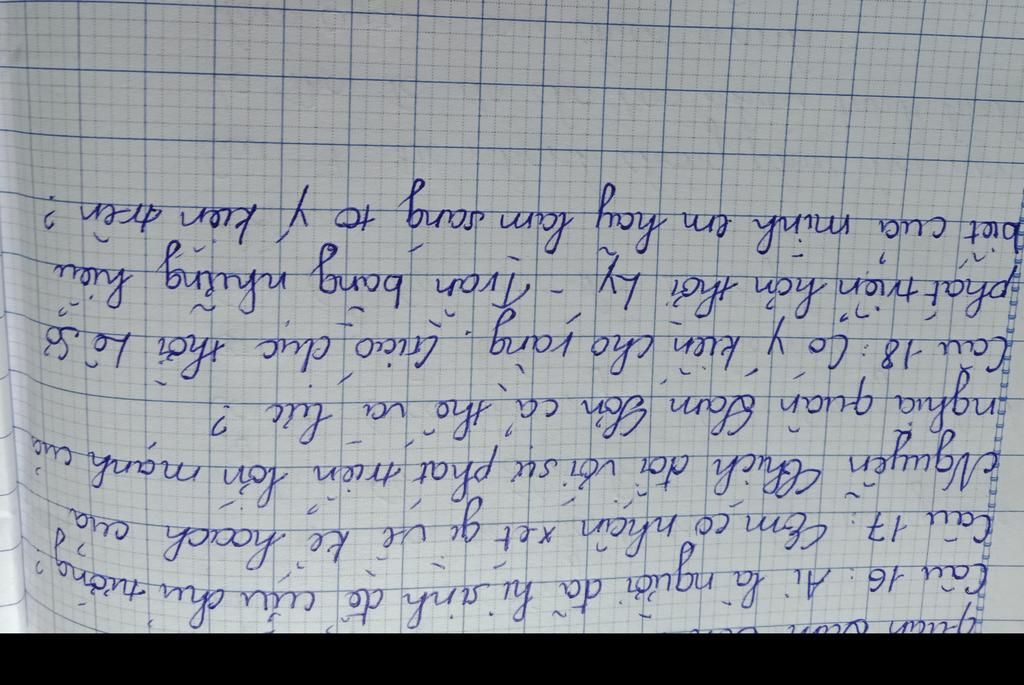 quân
Câu 16: Ai là người đã hi sinh để cứu chủ tướng?
Câu 17: Em có nhận xét gì về kế hoạch của
Nguyễn Chích đối với sự phát triển lớn mạnh của
nghĩa quân Lam Sơn cả thế và lực?
Câu 18: Có ý kiến cho rằng: Giáo dục thời Lê Sơ
phát triển hơn thời Lý - Trần bằng những hiểu
biết của mình em hãy làm sáng tỏ ý kiến trên?